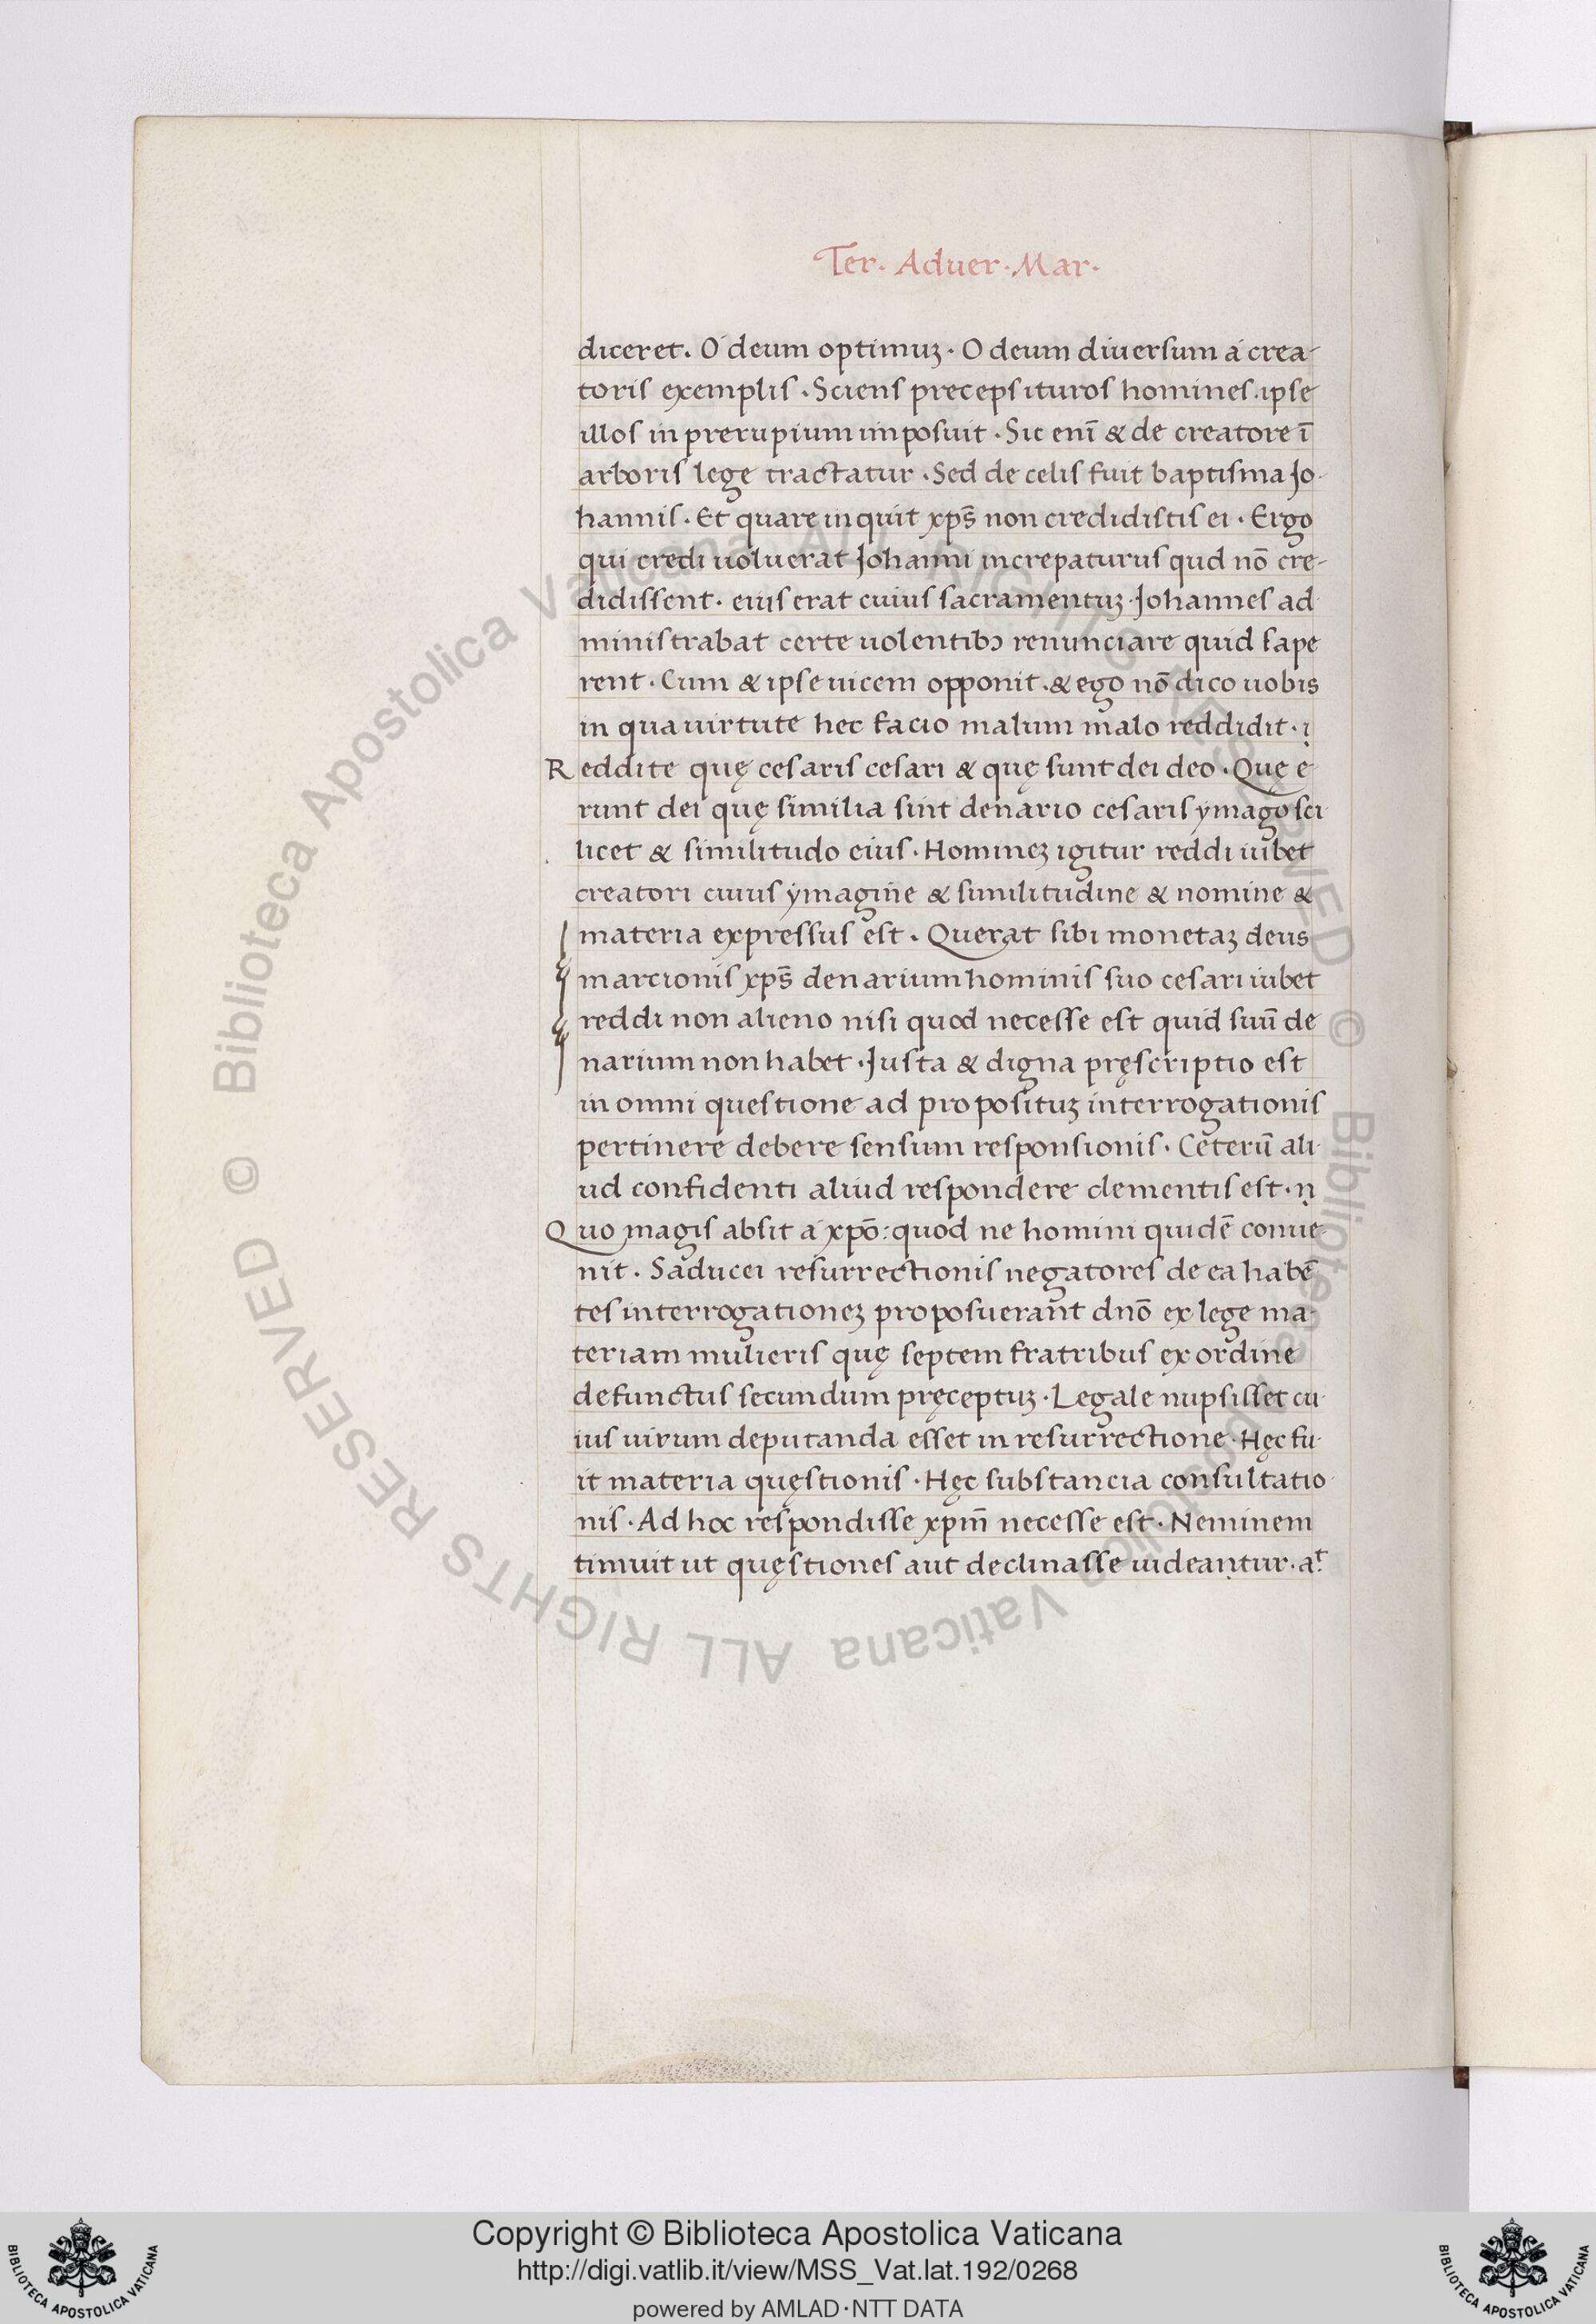 Ter. Aduer. Mar.
diceret. O deum optimuꝫ. O deum diuersum á crea-
toris exemplis. Sciens preceps ituros homines. ipse
illos in prerupium imposuit. Sic enī & de creatore ī
arboris lege tractatur. Sed de celis fuit baptisma Jo-
hannis. Et quare inquit xp̄s non credidistis ei. Ergo
qui credi uoluerat Johanni increpaturus qud nō cre-
didissent. eius erat cuius sacramentuꝫ. Johannes ad
ministrabat certe uolentibꝰ renunciare quid sape
rent. Cum & ipse uicem opponit. & ego nō dico uobis
in qua uirtute hec facio malum malo reddidit. ị
Reddite quę cesaris cesari & quę sunt dei deo. Quę e-
runt dei quę similia sint denario cesaris ymago sci-
licet & similitudo eius. Homineꝫ igitur reddi iubet
creatori cuius ymagine & similitudine & nomine &
materia expressus est. Querat sibi monetaꝫ deus
marcionis xp̄s denarium hominis suo cesari iubet
reddi non alieno nisi quod necesse est quid suū de
narium non habet. Justa & digna pręscriptio est
in omni questione ad propositum interrogationis
pertinere debere sensum responsionis. Ceterū ali-
ud confidenti aliud respondere dementis est. ṇ
Quo magis absit á xpō: quod ne homini quidē conue-
nit. Saducei resurrectionis negatores de ea habē
tes interrogationeꝫ proposuerant dnō ex lege ma-
teriam mulieris quę septem fratribus ex ordine
defunctus secundum pręceptuꝫ. Legale nupsisset cu-
ius uirum deputanda esset in resurrectione. Hęc fu-
it materia quęstionis. Hęc substancia consultatio-
nis. Ad hoc respondisse xpm̄ necesse est. Neminem
timuit ut quęstiones aut declinasse uideantur. aᵗ.
Copyright © Biblioteca Apostolica Vaticana
http://digi.vatlib.it/view/MSS_Vat.lat.192/0268
powered by AMLAD·NTT DATA
BIBLIOTECA APOSTOLICA VATICANA
BIBLIOTECA APOSTOLICA VATICANA
© Biblioteca Apostolica Vaticana ALL RIGHTS RESERVED © Biblioteca Apostolica Vaticana ALL RIGHTS RESERVED